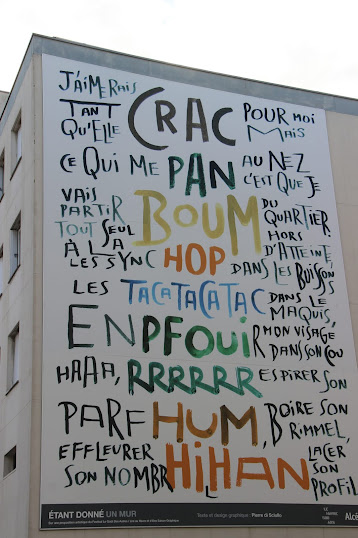 J'AIMERAIS
TANT
QU'ELLE CRAC POUR MOI
MAIS
CE QUI ME PAN AU NEZ
C'EST QUE JE
VAIS
PARTIR
TOUT SEUL BOUM DU
QUARTIER
HORS
À LA
LES SYNC HOP D'ATTEINTE,
DANS LES BUISSONS
LES TACATACATAC DANS LE
MAQUIS,
ENPFOUIR MON VISAGE
DANS SON COU
HAAA, RRRRRR ESPIRER SON
PARFHUM, BOIRE SON
RIMMEL,
EFFLEURER
SON NOMBRIL HIHAN LACER
SON
PROFIL
ÉTANT DONNÉ UN MUR Texte et design graphique : Pierre di Sciullo